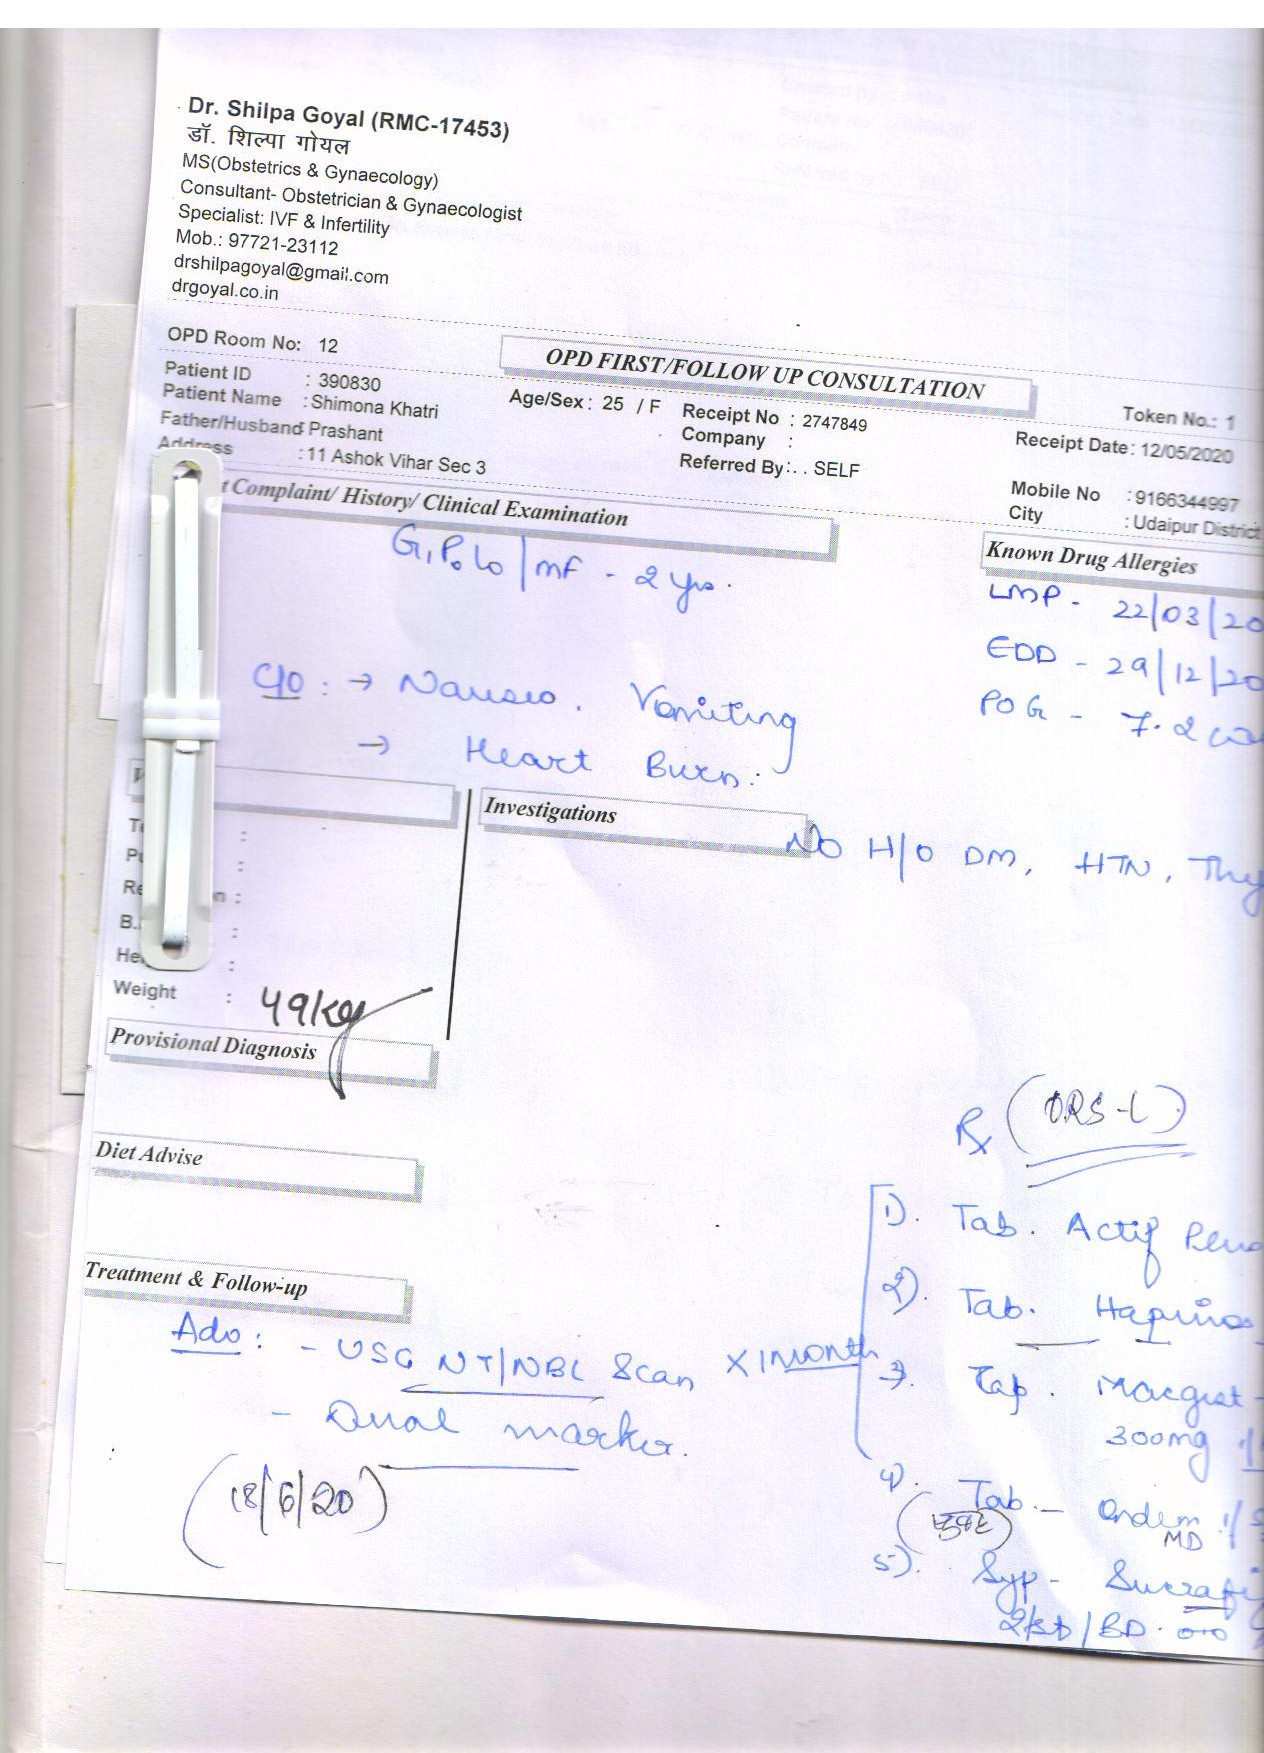 Dr. Shilpa Goyal (RMC-17453)
डॉ. शिल्पा गोयल
MS(Obstetrics & Gynaecology)
Consultant- Obstetrician & Gynaecologist
Specialist: IVF & Infertility
Mob.: 97721-23112
drshilpagoyal@gmail.com
drgoyal.co.in
OPD Room No: 12
OPD FIRST/FOLLOW UP CONSULTATION
Token No.: 1
Patient ID : 390830
Patient Name : Shimona Khatri
Age/Sex : 25 / F
Receipt No : 2747849
Receipt Date: 12/05/2020
Father/Husband: Prashant
Company :
Address : 11 Ashok Vihar Sec 3
Referred By:. . SELF
Mobile No : 9166344997
City : Udaipur District
t Complaint/ History/ Clinical Examination
Known Drug Allergies
G1P0L0 | mF - 2 yrs.
LMP - 22/03/20
EDD - 29/12/20
POG - 7.2
C/O : → Nausea, Vomiting
→ Heart Burn.
Investigations
No H/O DM, HTN, Thy
B.
Weight : 49kg
Provisional Diagnosis
Rx (ORS-L)
Diet Advise
1). Tab. Actif
2). Tab.
Treatment & Follow-up
Adv: - USG NT/NBL Scan X 1 month
- Dual marker.
(18/6/20)
3. Tab.
300mg
4). Tab. - Ondem
MD
5). Syp -